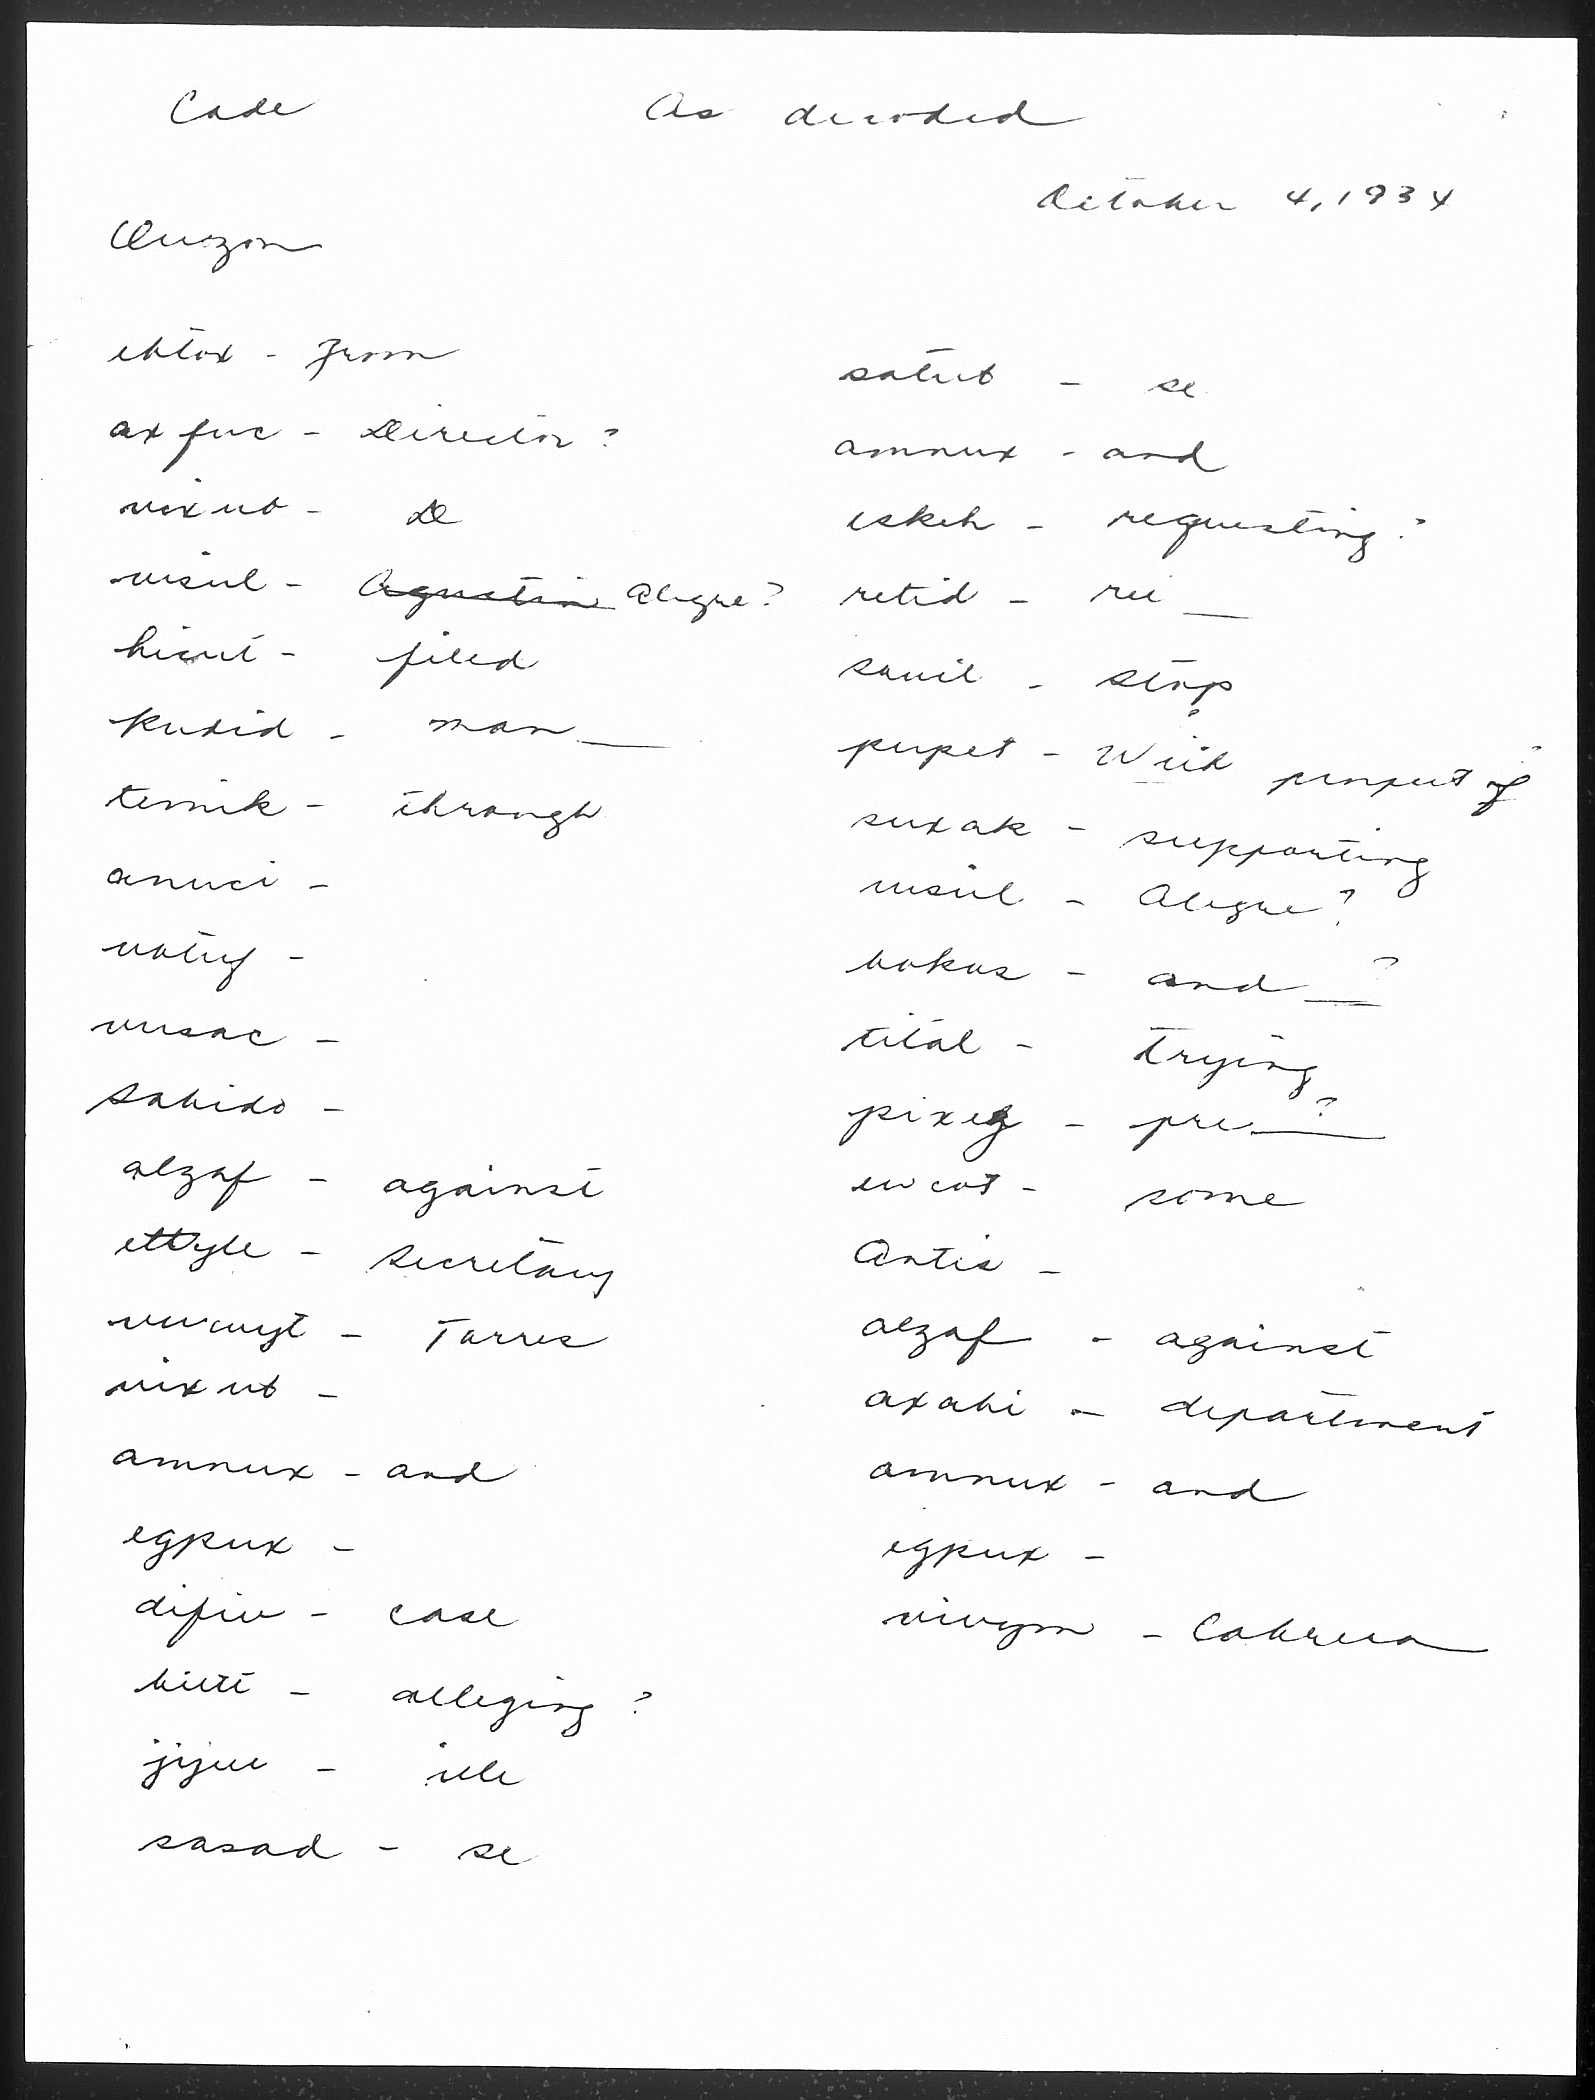 Code As decoded
October 4, 1934
Quezon
ebtox - from
axfuc - Director?
vixub - De
visul - Agustin Alegre?
hicut - filed
kudid - man __
temik - through
anuci -
votuf -
vusac -
sabido -
alzaf - against
ettyle - Secretary
Torres
vixub -
amnux - and
egpux -
difiw - case
alleging?
ille
sasad - se
satub - se
amnux - and
eskeh - requesting?
retid - re
sovil - stop
pupet - With prospect of
suxak - supporting
visul - Alegre?
bokus - and __?
tital - trying
pixeg - pre __?
ewcot - some
Antis -
alzaf - against
axabi - department
amnux - and
egpux -
vivym - Cabrera